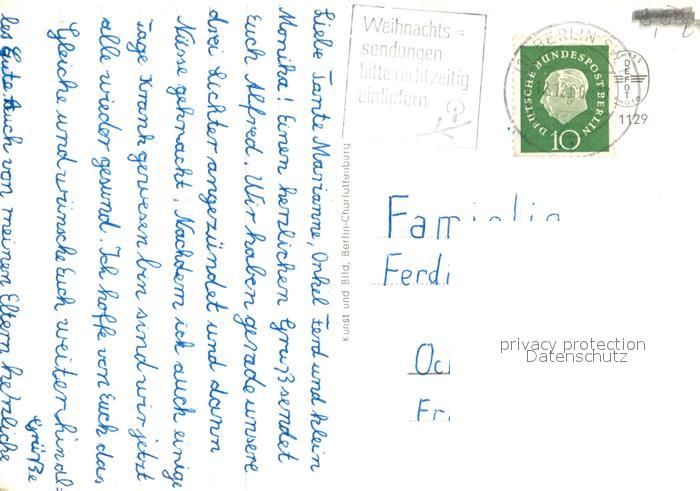 Liebe Tante Marianne, Onkel Ferd und klein
Monika! Einen herzlichen Gruß sendet
Euch Alfred. Wir haben gerade unsere
drei Lichter angezündet und dann
Nüsse geknackt. Nachdem ich auch einige
Tage krank gewesen bin sind wir jetzt
alle wieder gesund. Ich hoffe von Euch das
Gleiche und wünsche Euch weiterhin al=
les Gute. Auch von meinen Eltern herzliche
Grüße
Kunst und Bild, Berlin-Charlottenburg
Weihnachts=
sendungen
bitte rechtzeitig
einliefern
BERLIN
DEUTSCHE BUNDESPOST BERLIN
10
DEFOT
1129
Familie
Ferdi
privacy protection
Datenschutz
Fr.